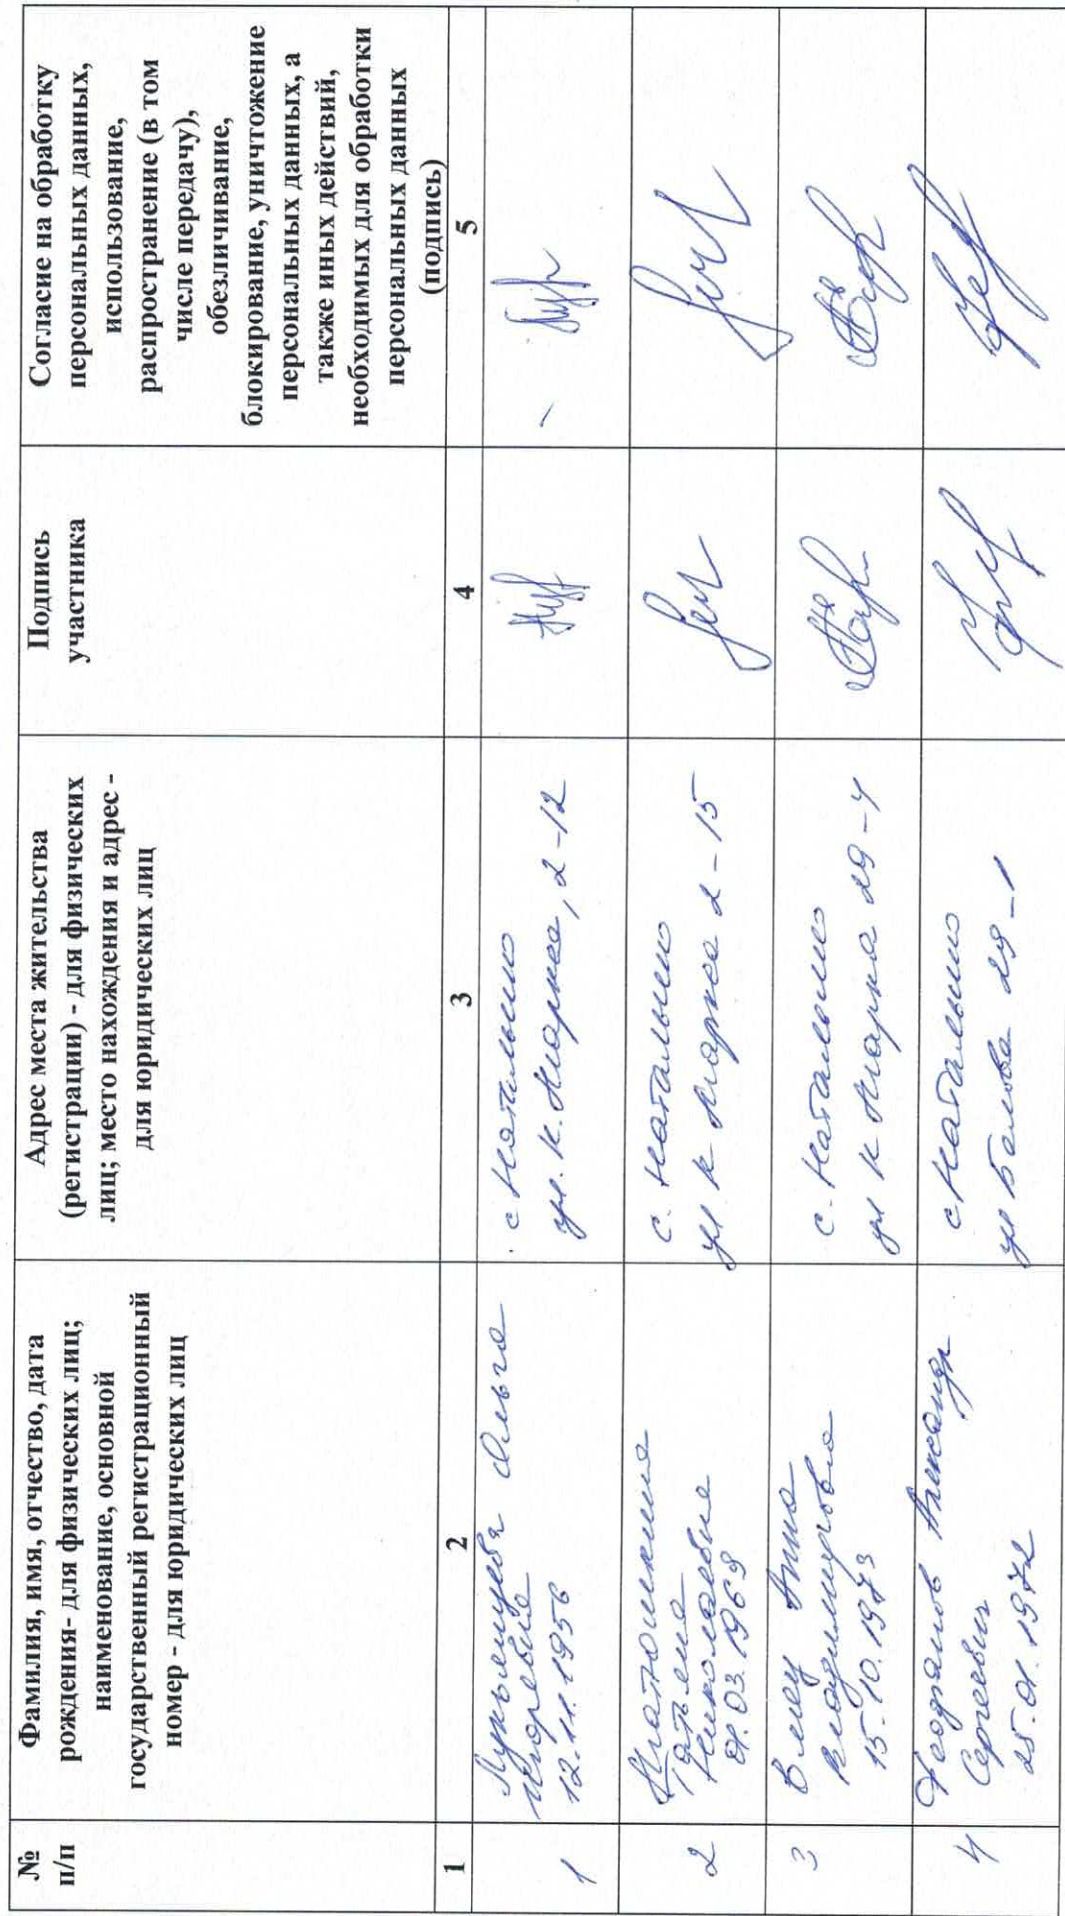 №
п/п
Фамилия, имя, отчество, дата
рождения- для физических лиц;
наименование, основной
государственный регистрационный
номер - для юридических лиц
Адрес места жительства
(регистрации) - для физических
лиц; место нахождения и адрес -
для юридических лиц
Подпись
участника
Согласие на обработку
персональных данных,
использование,
распространение (в том
числе передачу),
обезличивание,
блокирование, уничтожение
персональных данных, а
также иных действий,
необходимых для обработки
персональных данных
(подпись)
1
2
3
4
5
1
Лукьянцева Ольга
Игоревна
12.11.1956
с Натальино
ул. К. Маркса, 2-12
2
Татьяна
Николаевна
01.03.1969
с. Натальино
ул К Маркса 2-15
3
Анна
Владимировна
15.10.1973
с. Натальино
ул К Маркса 29-4
4
Александр
Сергеевич
25.01.1972
с Натальино
ул 29-1